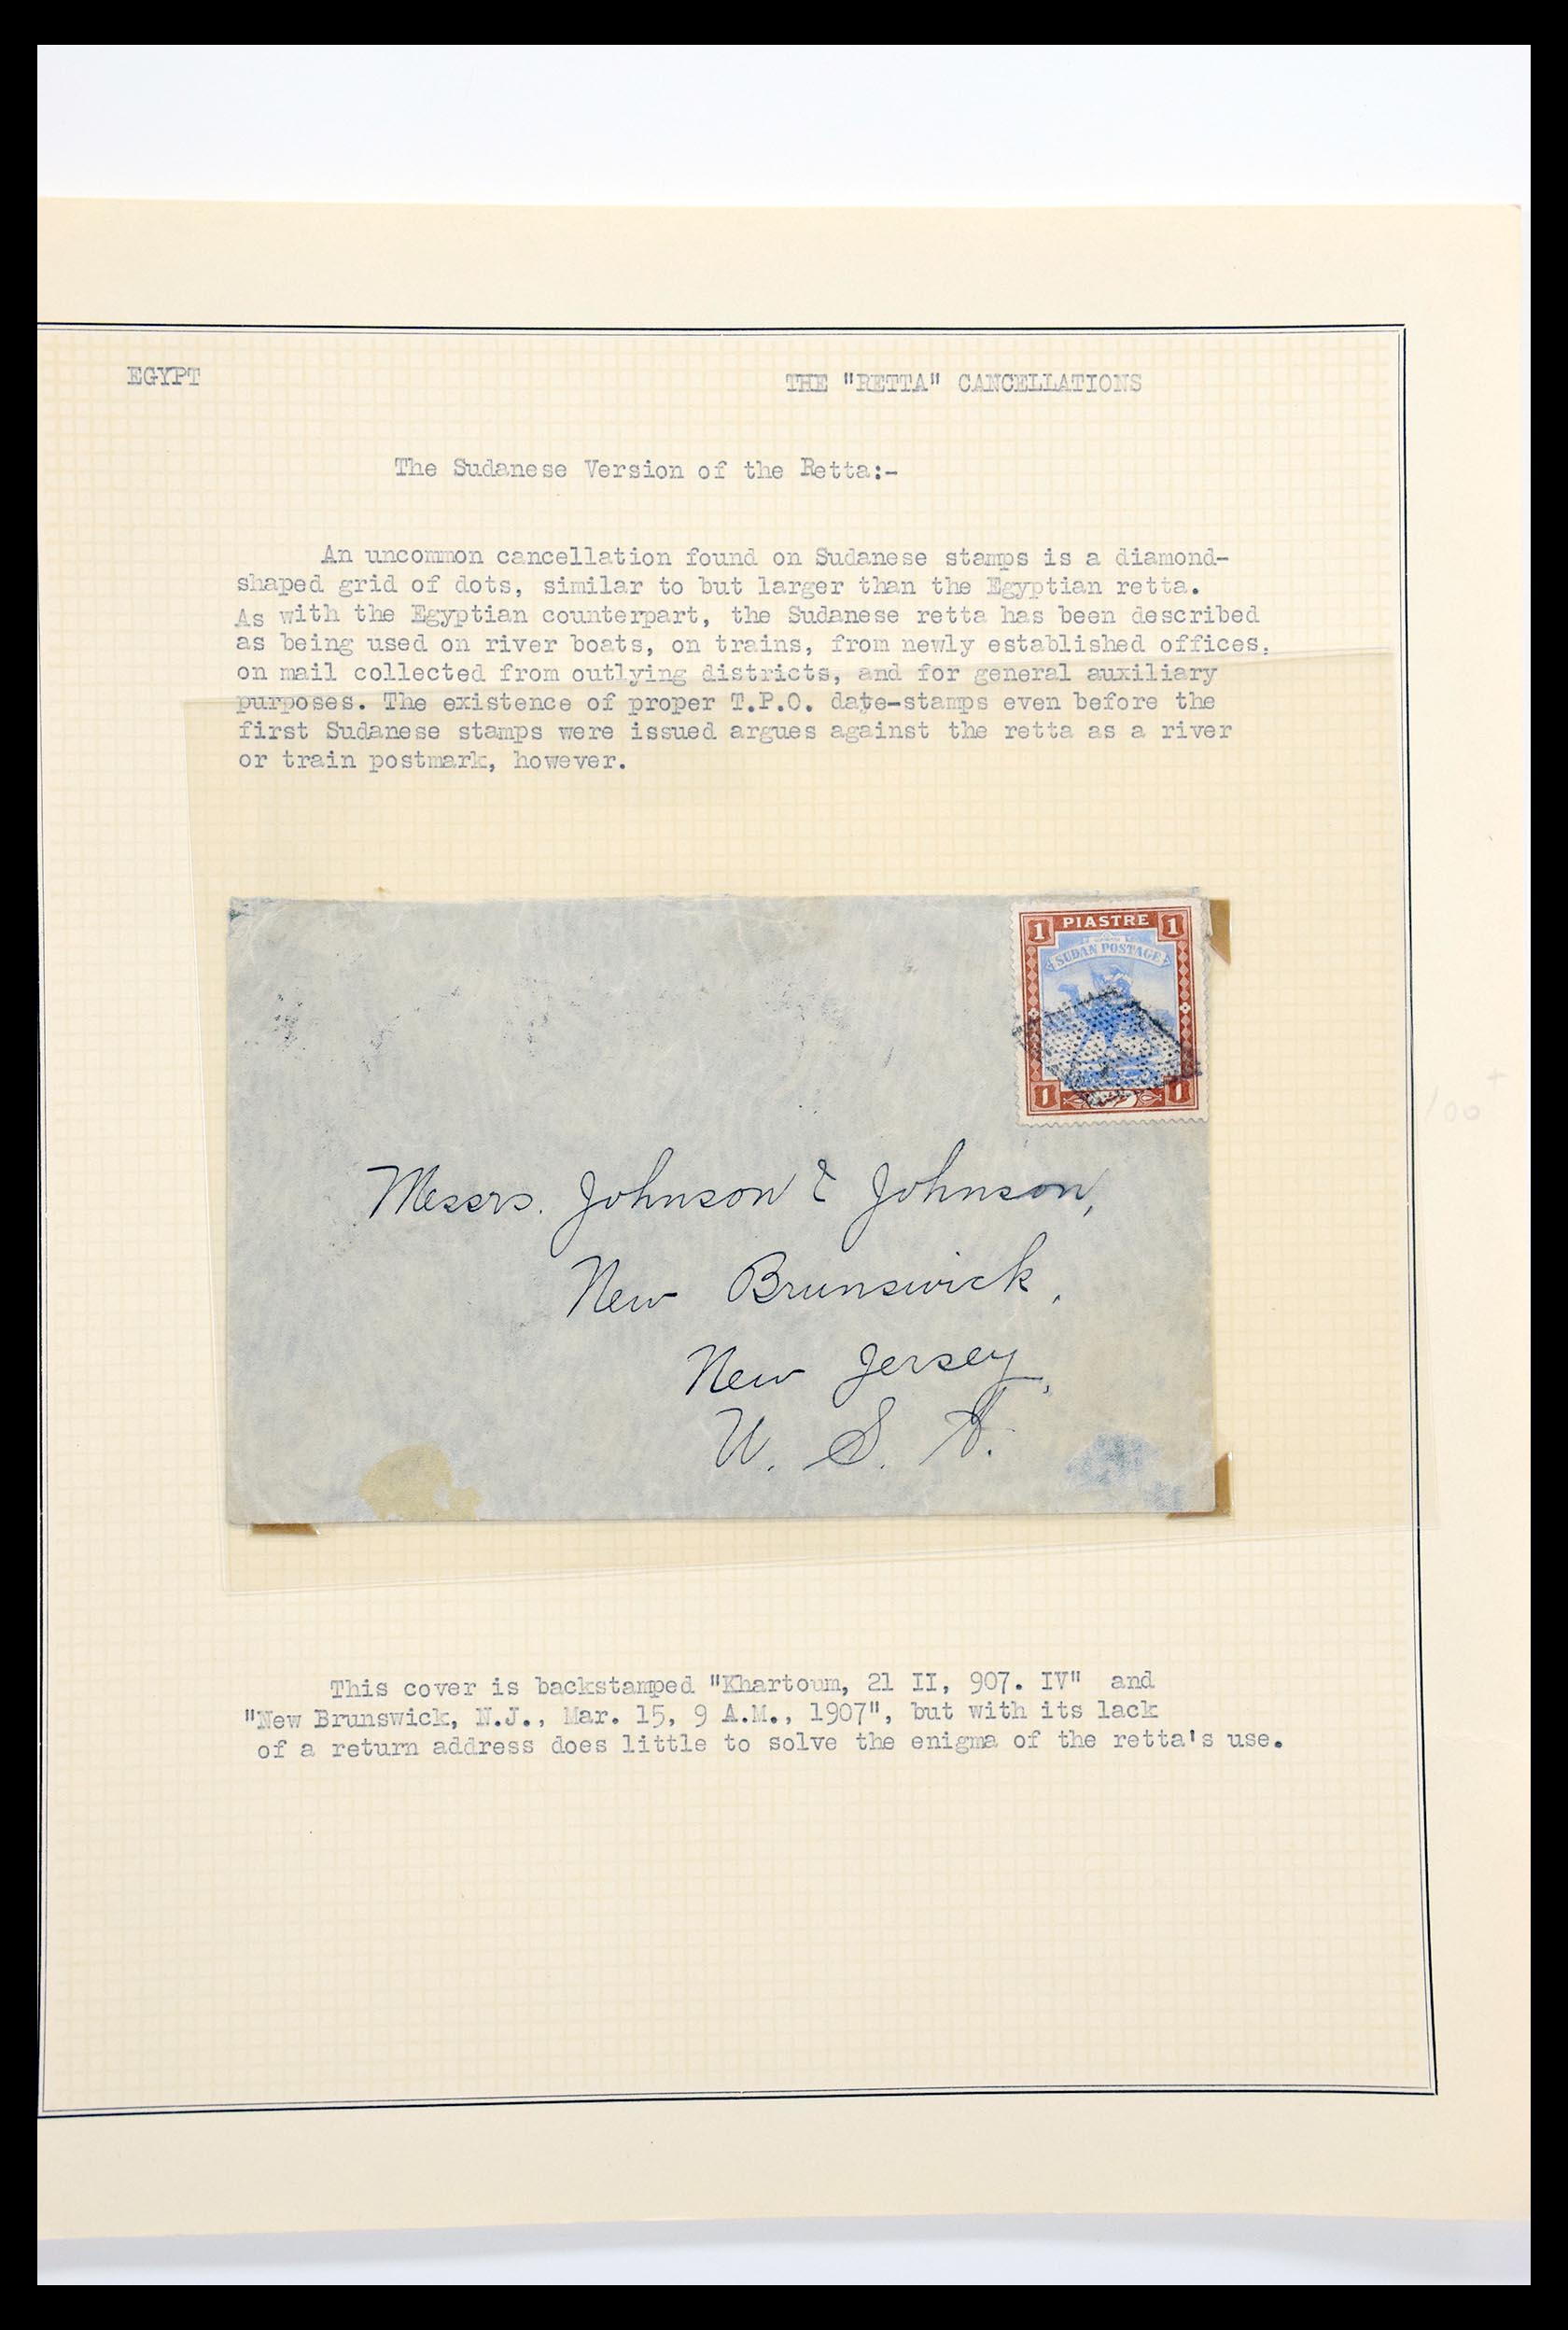 EGYPT
THE "RETTA" CANCELLATIONS
The Sudanese Version of the Retta:-
An uncommon cancellation found on Sudanese stamps is a diamond-
shaped grid of dots, similar to but larger than the Egyptian retta.
As with the Egyptian counterpart, the Sudanese retta has been described
as being used on river boats, on trains, from newly established offices,
on mail collected from outlying districts, and for general auxiliary
purposes. The existence of proper T.P.O. date-stamps even before the
first Sudanese stamps were issued argues against the retta as a river
or train postmark, however.
1 PIASTRE 1
SUDAN POSTAGE
1 1
Messrs. Johnson & Johnson,
New Brunswick,
New Jersey,
U. S. A.
100
This cover is backstamped "Khartoum, 21 II, 907. IV" and
"New Brunswick, N.J., Mar. 15, 9 A.M., 1907", but with its lack
of a return address does little to solve the enigma of the retta's use.